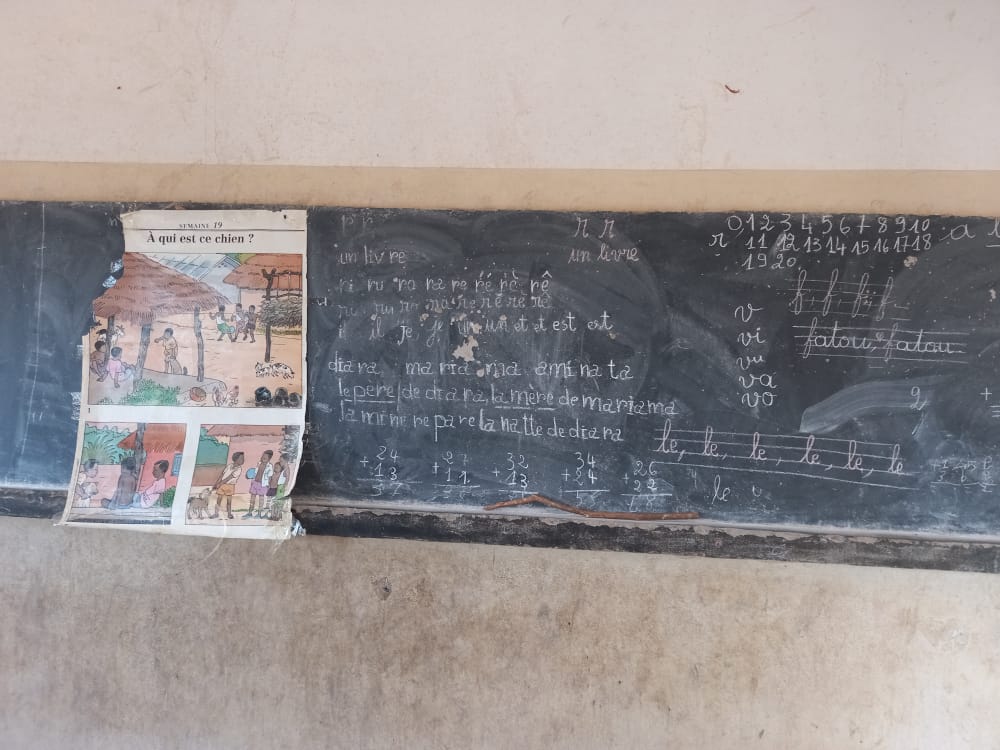 SEMAINE 19
À qui est ce chien ?
1
r r
un livre
un livre
ri ru ro ra re ré rè rê
ri ru ro ra re ré re rê
il il je je un un et et est est
diara mariama aminata
le pere de diara, la mère de mariama
la mi ré re pare la natte de diara
24
+ 13
37
27
+ 11
32
+ 13
34
+ 24
26
+ 22
0 1 2 3 4 5 6 7 8 9 10
r 11 12 13 14 15 16 17 18
19 20
f, f, f, f
v
vi
vu
va
vo
fatou, fatou
2
le, le, le, le, le, le
le
a